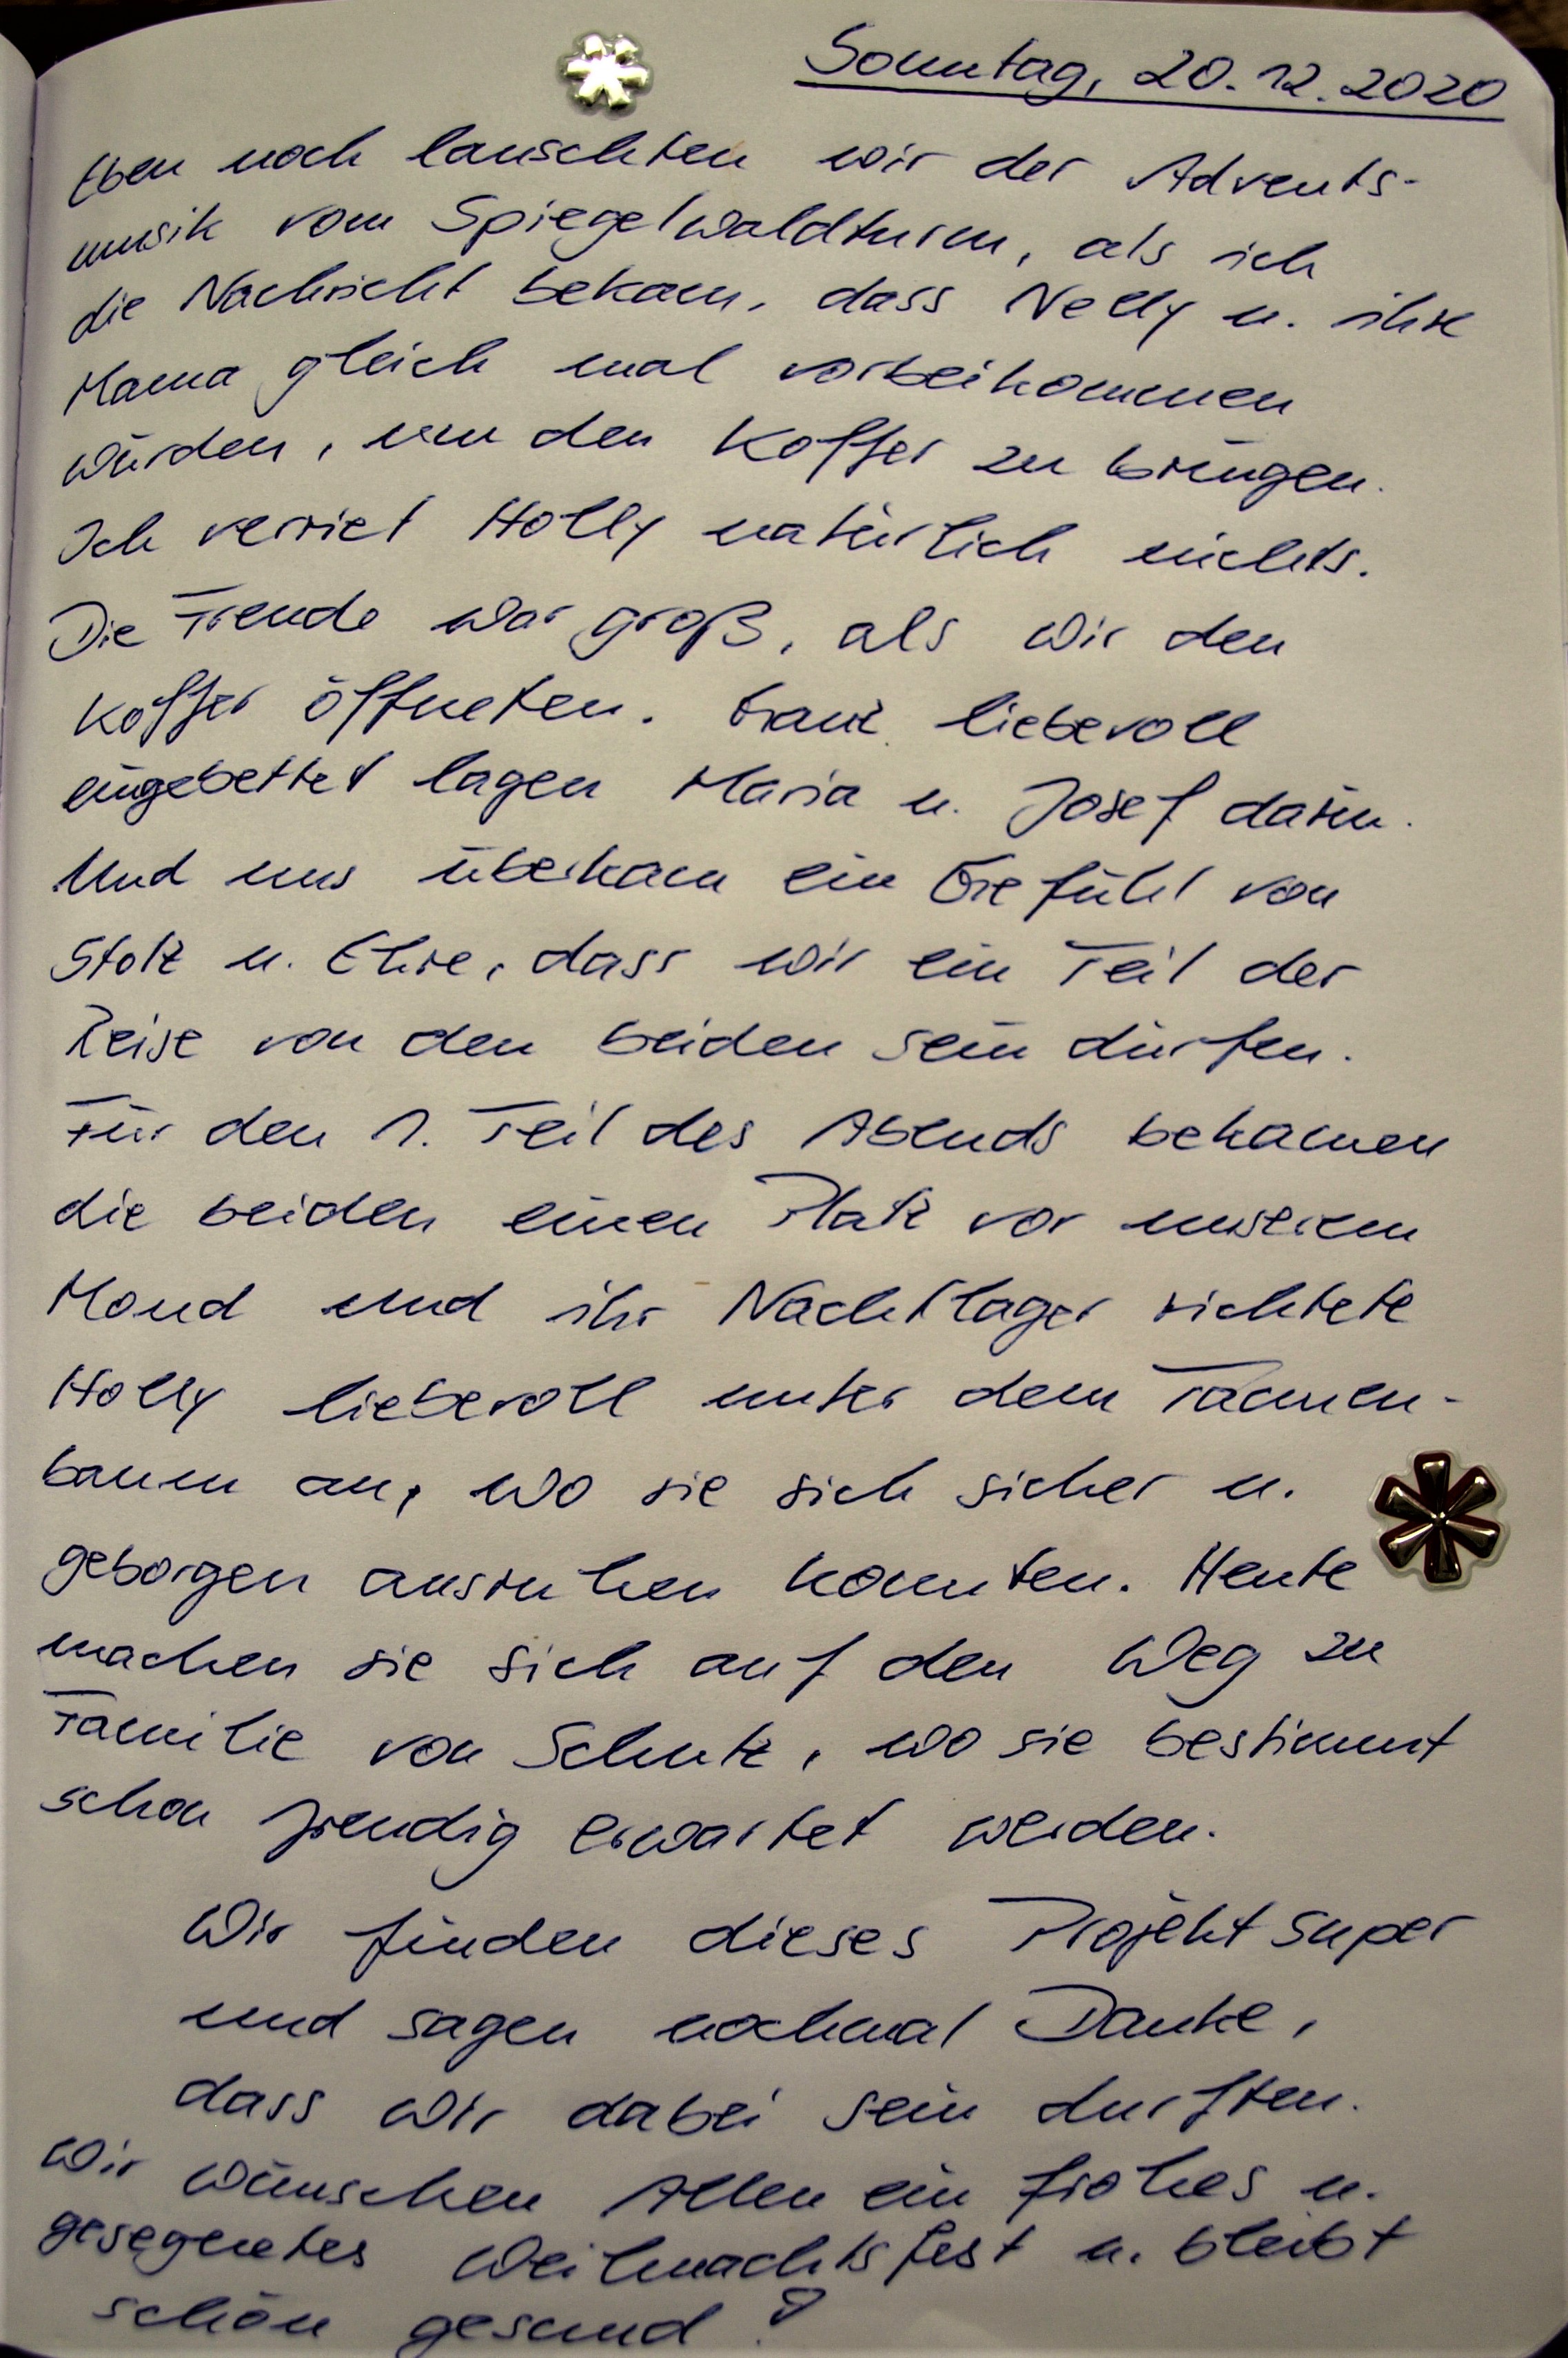 Sonntag, 20.12.2020
Eben noch lauschten wir der Advents-
musik vom Spiegelwaldturm, als ich
die Nachricht bekam, dass Nelly u. ihre
Mama gleich mal vorbeikommen
würden, um den Koffer zu bringen.
Ich verriet Holly natürlich nichts.
Die Freude war groß, als wir den
Koffer öffneten. Ganz liebevoll
eingebettet lagen Maria u. Josef darin.
Und uns überkam ein Gefühl von
Stolz u. Ehre, dass wir ein Teil der
Reise von den beiden sein dürfen.
Für den 1. Teil des Abends bekamen
die beiden einen Platz vor unserem
Mond und ihr Nachtlager richtete
Holly liebevoll unter dem Tannen-
baum an, wo sie sich sicher u.
geborgen ausruhen konnten. Heute
machen sie sich auf den Weg zu
Familie von Schutz, wo sie bestimmt
schon freudig erwartet werden.
Wir finden dieses Projekt super
und sagen nochmal Danke,
dass wir dabei sein durften.
Wir wünschen Allen ein frohes u.
gesegnetes Weihnachtsfest u. bleibt
schön gesund!